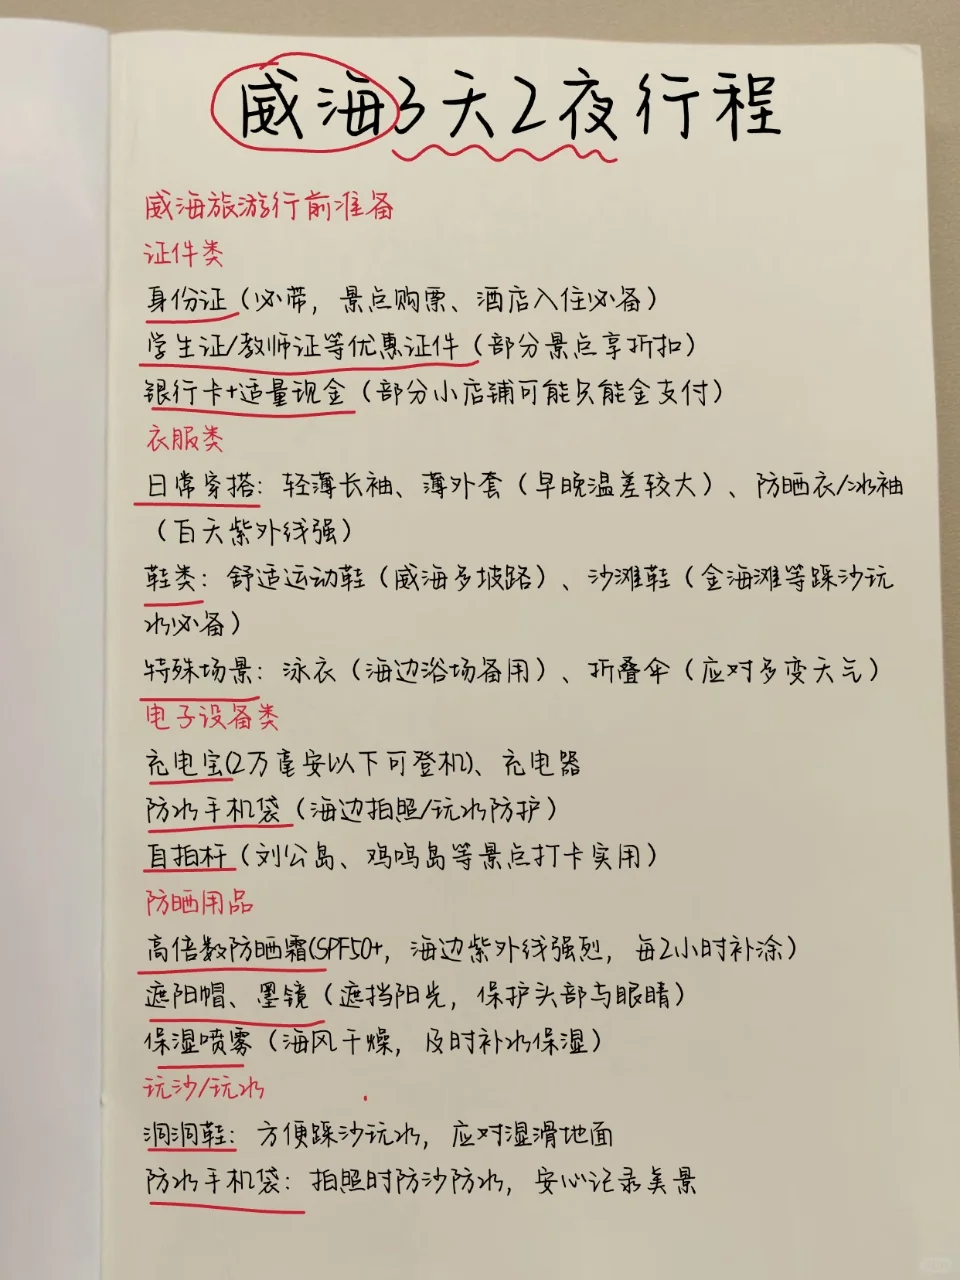 威海3天2夜行程
威海旅游行前准备
证件类
身份证(必带，景点购票、酒店入住必备)
学生证/教师证等优惠证件(部分景点享折扣)
银行卡+适量现金(部分小店铺可能只能金支付)
衣服类
日常穿搭：轻薄长袖、薄外套(早晚温差较大)、防晒衣/冰袖
(白天紫外线强)
鞋类：舒适运动鞋(威海多坡路)、沙滩鞋(金海滩等踩沙玩
水必备)
特殊场景：泳衣(海边浴场备用)、折叠伞(应对多变天气)
电子设备类
充电宝(2万毫安以下可登机)、充电器
防水手机袋(海边拍照/玩水防护)
自拍杆(刘公岛、鸡鸣岛等景点打卡实用)
防晒用品
高倍数防晒霜(SPF50+，海边紫外线强烈，每2小时补涂)
遮阳帽、墨镜(遮挡阳光，保护头部与眼睛)
保湿喷雾(海风干燥，及时补水保湿)
玩沙/玩水
洞洞鞋：方便踩沙玩水，应对湿滑地面
防水手机袋：拍照时防沙防水，安心记录美景